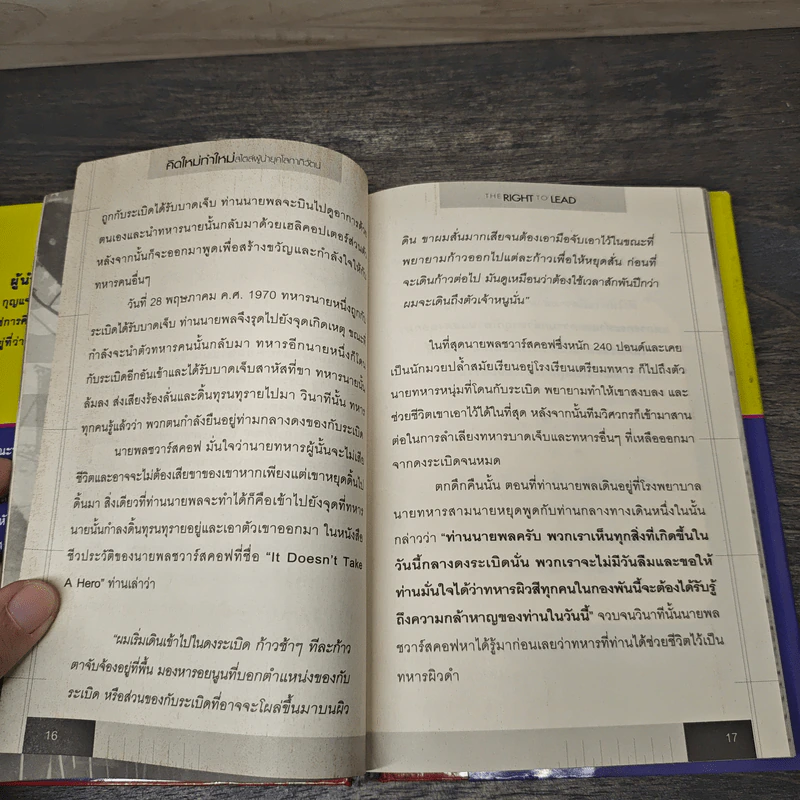 คิดใหม่ทำใหม่สไตล์ผู้นำยุคโลกาภิวัตน์
ถูกกับระเบิดได้รับบาดเจ็บ ท่านนายพลจะบินไปดูอาการด้วย
ตนเองและนำทหารนายนั้นกลับมาด้วยเฮลิคอปเตอร์ส่วนตัว
หลังจากนั้นก็จะออกมาพูดเพื่อสร้างขวัญและกำลังใจให้กับ
ทหารคนอื่นๆ
วันที่ 28 พฤษภาคม ค.ศ. 1970 ทหารนายหนึ่งถูกกับ
ระเบิดได้รับบาดเจ็บ ท่านนายพลจึงรุดไปยังจุดเกิดเหตุ ขณะที่
กำลังจะนำตัวทหารคนนั้นกลับมา ทหารอีกนายหนึ่งก็โดน
กับระเบิดอีกอันเข้าและได้รับบาดเจ็บสาหัสที่ขา ทหารนายนั้น
ล้มลง ส่งเสียงร้องลั่นและดิ้นทุรนทุรายไปมา วินาทีนั้น ทหาร
ทุกคนรู้แล้วว่า พวกตนกำลังยืนอยู่ท่ามกลางดงของกับระเบิด
นายพลชวาร์สคอฟ มั่นใจว่านายทหารผู้นั้นจะไม่เสีย
ชีวิตและอาจจะไม่ต้องเสียขาของเขาหากเพียงแต่เขาหยุดดิ้นไป
ดิ้นมา สิ่งเดียวที่ท่านนายพลจะทำได้ก็คือเข้าไปยังจุดที่ทหาร
นายนั้นกำลงดิ้นทุรนทุรายอยู่และเอาตัวเขาออกมา ในหนังสือ
ชีวประวัติของนายพลชวาร์สคอฟที่ชื่อ “It Doesn't Take
A Hero” ท่านเล่าว่า
“ผมเริ่มเดินเข้าไปในดงระเบิด ก้าวช้าๆ ทีละก้าว
ตาจับจ้องอยู่ที่พื้น มองหารอยนูนที่บอกตำแหน่งของกับ
ระเบิด หรือส่วนของกับระเบิดที่อาจจะโผล่ขึ้นมาบนผิว
16
THE RIGHT TO LEAD
ดิน ขาผมสั่นมากเสียจนต้องเอามือจับเอาไว้ในขณะที่
พยายามก้าวออกไปแต่ละก้าวเพื่อให้หยุดสั่น ก่อนที่
จะเดินก้าวต่อไป มันดูเหมือนว่าต้องใช้เวลาสักพันปีกว่า
ผมจะเดินถึงตัวเจ้าหนูนั่น”
ในที่สุดนายพลชวาร์สคอฟซึ่งหนัก 240 ปอนด์และเคย
เป็นนักมวยปล้ำสมัยเรียนอยู่โรงเรียนเตรียมทหาร ก็ไปถึงตัว
นายทหารหนุ่มที่โดนกับระเบิด พยายามทำให้เขาสงบลง และ
ช่วยชีวิตเขาเอาไว้ได้ในที่สุด หลังจากนั้นทีมวิศวกรก็เข้ามาสาน
ต่อในการลำเลียงทหารบาดเจ็บและทหารอื่นๆ ที่เหลือออกมา
จากดงระเบิดจนหมด
ตกดึกคืนนั้น ตอนที่ท่านนายพลเดินอยู่ที่โรงพยาบาล
นายทหารสามนายหยุดพูดกับท่านกลางทางเดินหนึ่งในนั้น
กล่าวว่า “ท่านนายพลครับ พวกเราเห็นทุกสิ่งที่เกิดขึ้นใน
วันนี้กลางดงระเบิดนั่น พวกเราจะไม่มีวันลืมและขอให้
ท่านมั่นใจได้ว่าทหารผิวสีทุกคนในกองพันนี้จะต้องได้รับรู้
ถึงความกล้าหาญของท่านในวันนี้” จวบจนวินาทีนั้นนายพล
ชวาร์สคอฟหาได้รู้มาก่อนเลยว่าทหารที่ท่านได้ช่วยชีวิตไว้เป็น
ทหารผิวดำ
17